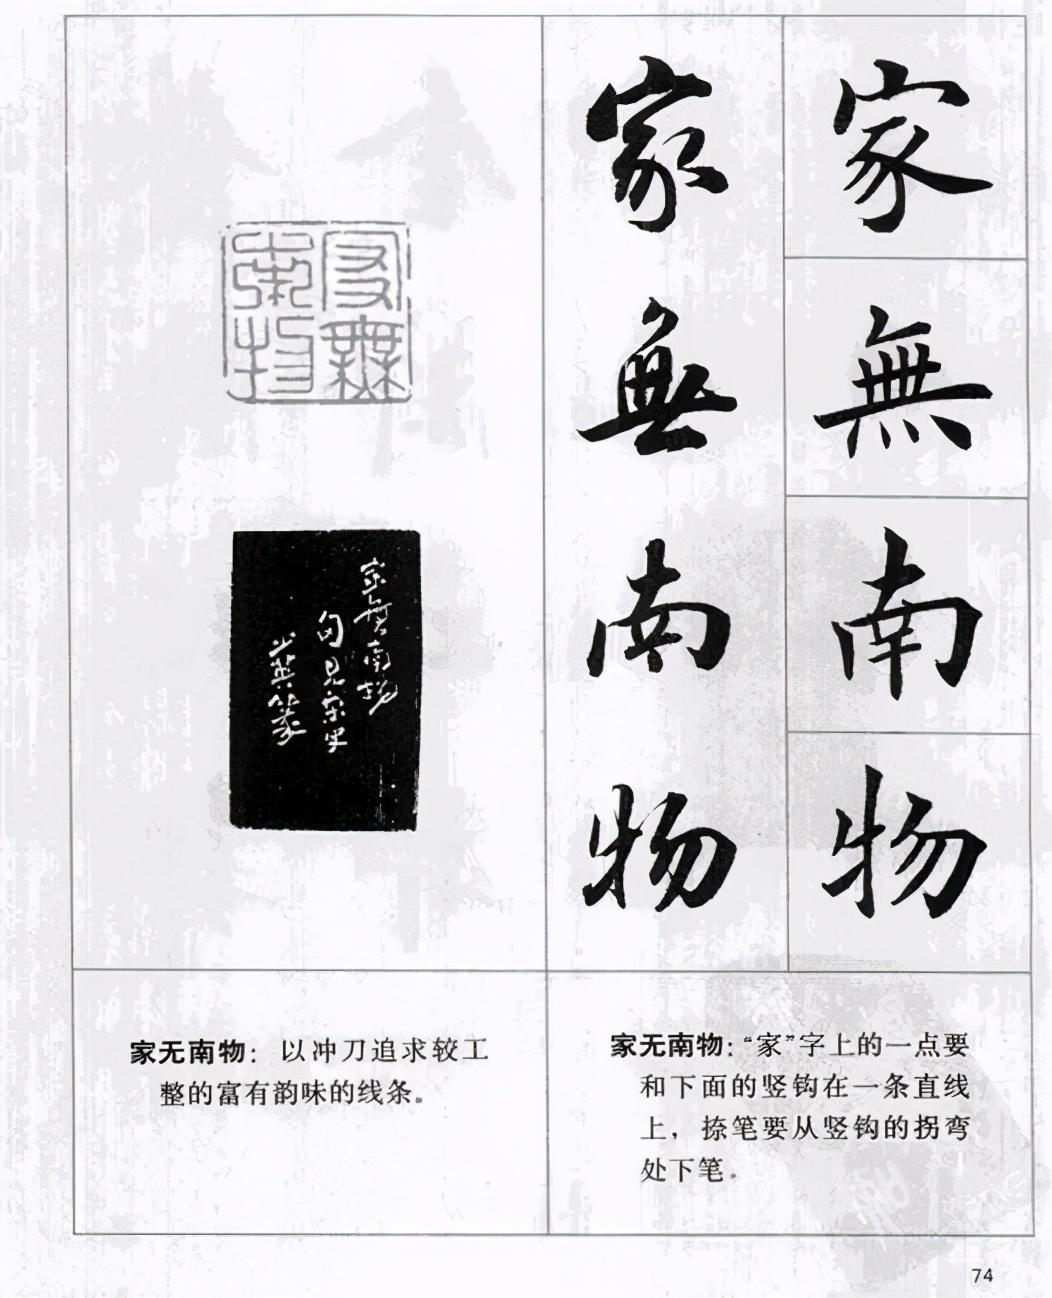 家
無
南
物
家
無
南
物
家無
南物
家無南物
句見宋史
篆
家无南物：“家”字上的一点要
和下面的竖钩在一条直线
上，捺笔要从竖钩的拐弯
处下笔。
家无南物：以冲刀追求较工
整的富有韵味的线条。
74